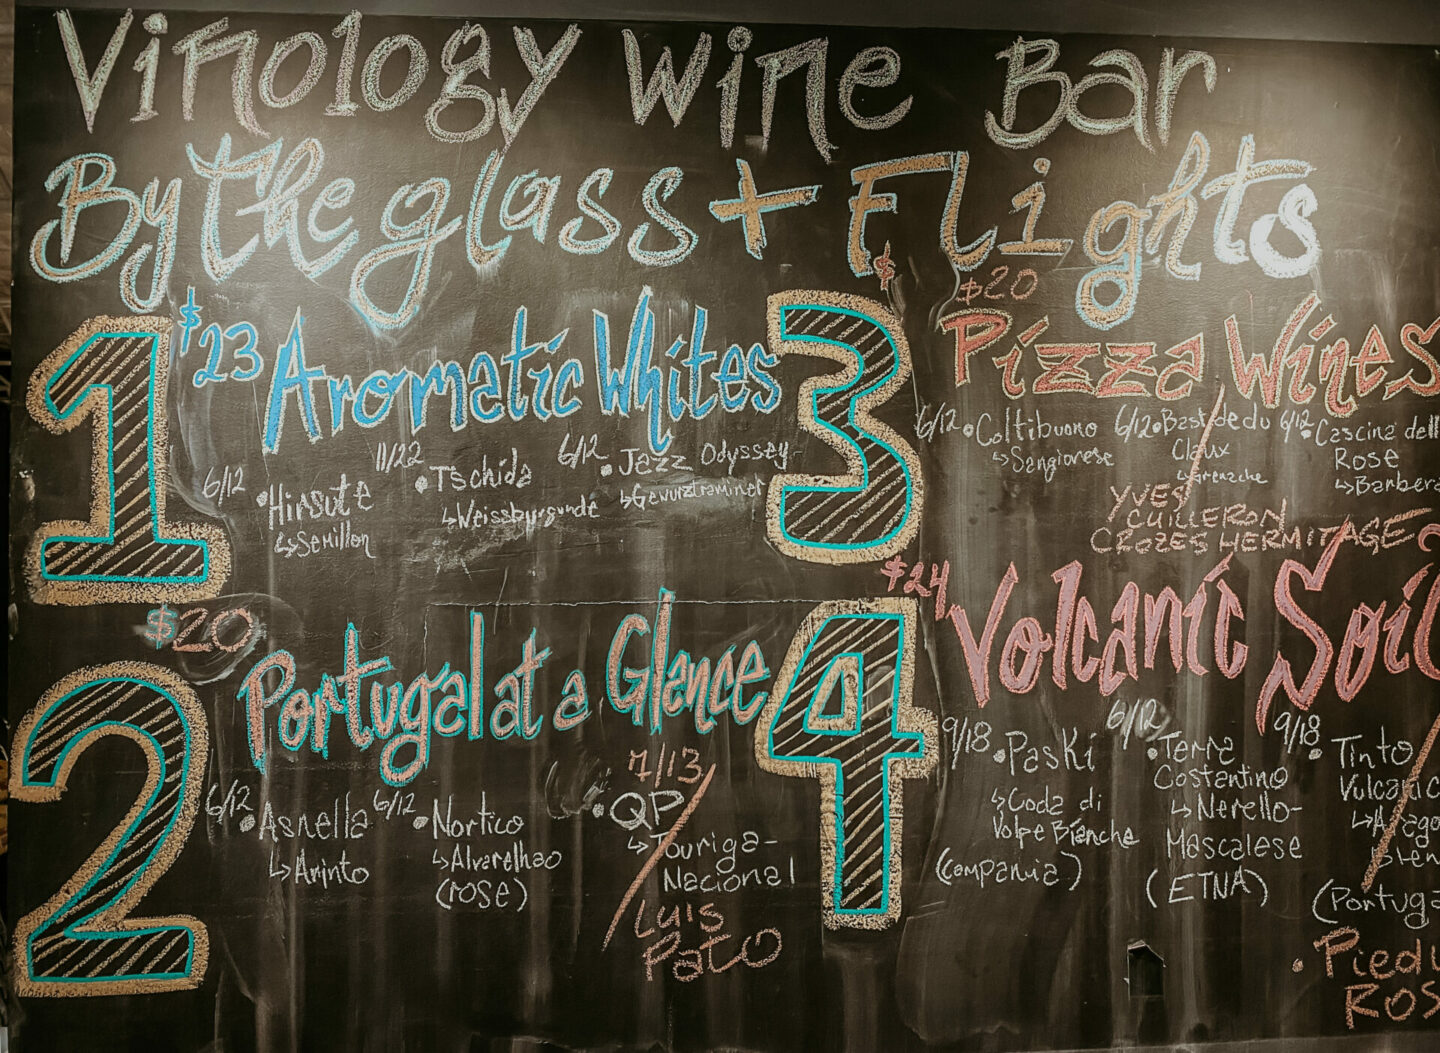 Vinology Wine Bar
By the glass + Flights
1
$23
Aromatic Whites
6/12
•Hirsute
↳Semillon
11/22
•Tschida
↳Weissburgunde
6/12
•Jazz Odyssey
↳Gewurztraminer
2
$20
Portugal at a Glance
6/12
•Asnella
↳Arinto
6/12
•Nortico
↳Alvarelhao
(rose)
7/13
•QP
↳Touriga-
Nacional
Luis
Pato
3
$
$20
Pizza Wines
6/12 •Coltibuono
↳Sangiorese
6/12 •Bastide du
Claux
↳Grenache
6/12 •Cascina dell
Rose
↳Barbera
YVES
CUILLERON
CROZES HERMITAGE
4
$24
Volcanic Soil
9/18
•Paski
↳Coda di
Volpe Bianche
(Compania)
6/12
•Terra
Costantino
↳Nerello-
Mascalese
(ETNA)
9/18
•Tinto
Vulcanic
(Portuga
•Piedu
ROS